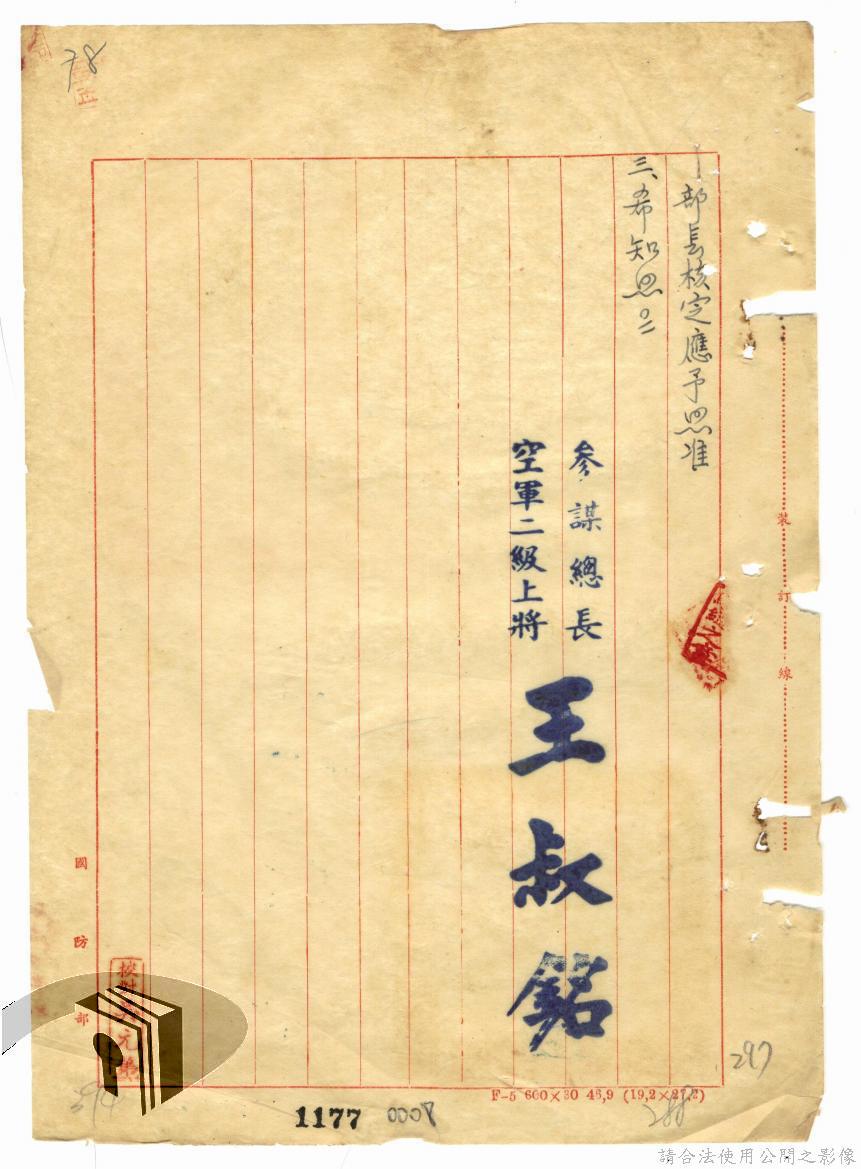 78
部長核定應予照准
三、希知照。
參謀總長
空軍二級上將
王叔銘
裝訂線
國防部
校對
元
297
288
F-5 600×30 46,9 (19,2×27,2)
1177 0007
請合法使用公開之影像